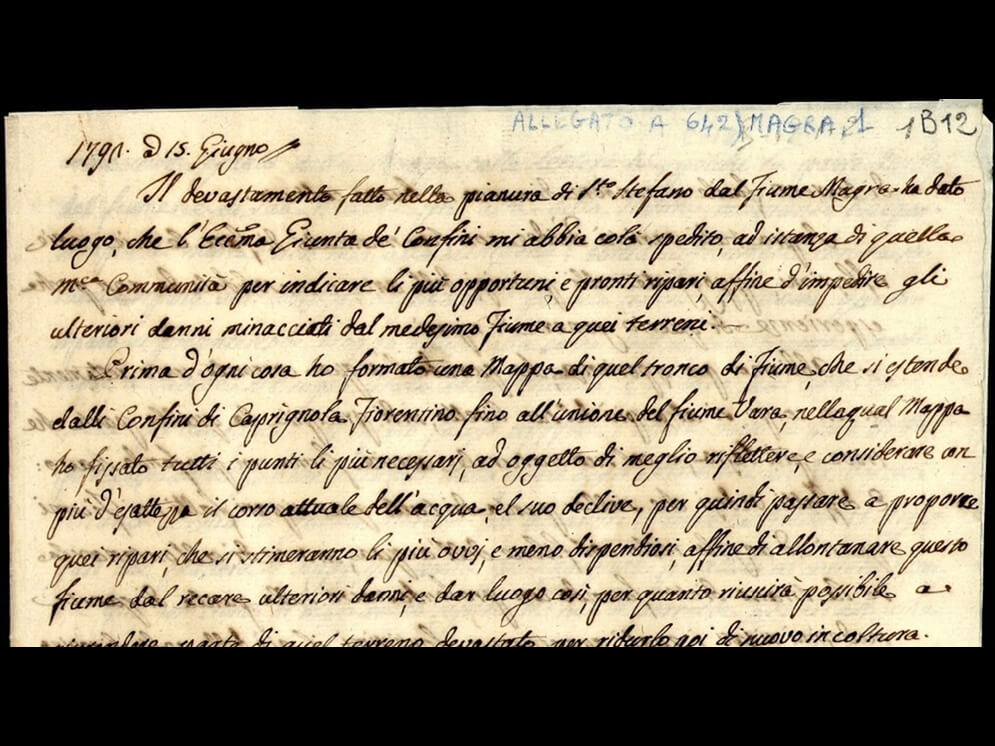 ALLEGATO A 642) MAGRA 1B12
1791. a 15. Giugno
Il devastamento fatto nella pianura di S.to Stefano dal Fiume Magra ha dato
luogo, che l'Eccma Giunta de' Confini mi abbia colà spedito, ad istanza di quella
mca Communità per indicare li più opportuni, e pronti ripari, affine d'impedire gli
ulteriori danni minacciati dal medesimo Fiume a quei terreni.
Prima d'ogni cosa ho formato una Mappa di quel tronco di Fiume, che si estende
dalli Confini di Caprignola Fiorentino fino all'unione del fiume Vara, nella qual Mappa
ho fissato tutti i punti li più necessari, ad oggetto di meglio riflettere, e considerare con
più d'esattezza il corso attuale dell'acqua, el suo declive, per quindi passare a proporre
quei ripari, che si stimeranno li più ovvj, e meno dispendiosi, affine di allontanare questo
fiume dal recare ulteriori danni, e dar luogo così, per quanto riuscirà possibile a
riprendere parte di quel terreno devastato per ridurlo poi di nuovo in coltura.